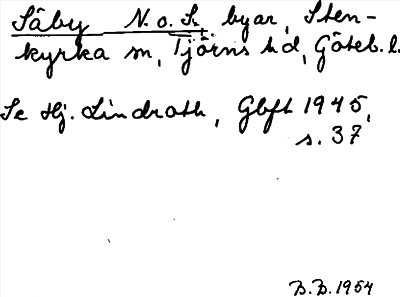 Säby N. o. S. byar, Sten-
kyrka sn, Tjörns hd, Göteb. l.
Se Hj. Lindroth, Gbfh 1945,
s. 37
B.B. 1954